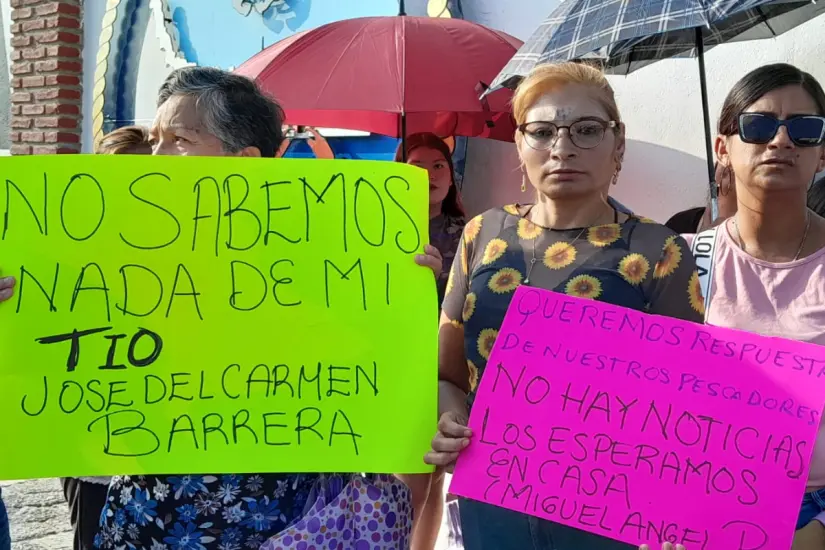 NO SABEMOS
NADA DE MI
TIO
JOSE DEL CARMEN
BARRERA
QUEREMOS RESPUESTA
DE NUESTROS PESCADORES
NO HAY NOTICIAS
LOS ESPERAMOS
EN CASA
(MIGUEL ANGEL